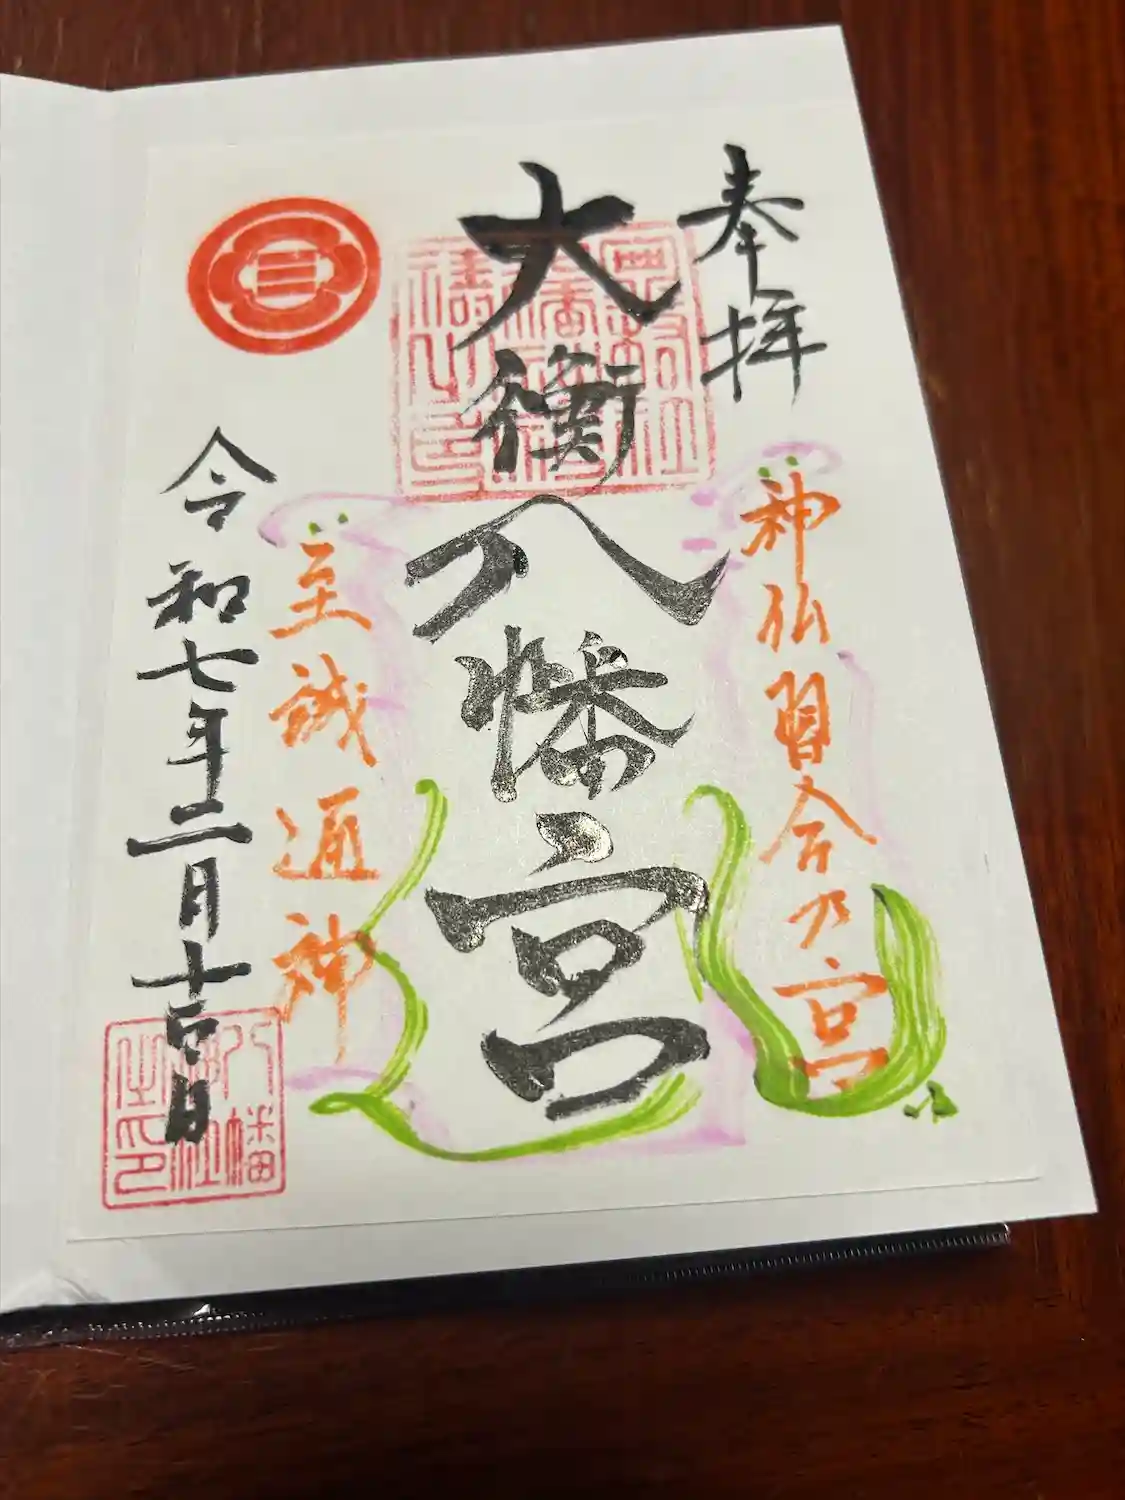 奉拝
神仏習合乃宮
大衡八幡宮
至誠通神
令和七年二月十六日
八幡神社之印